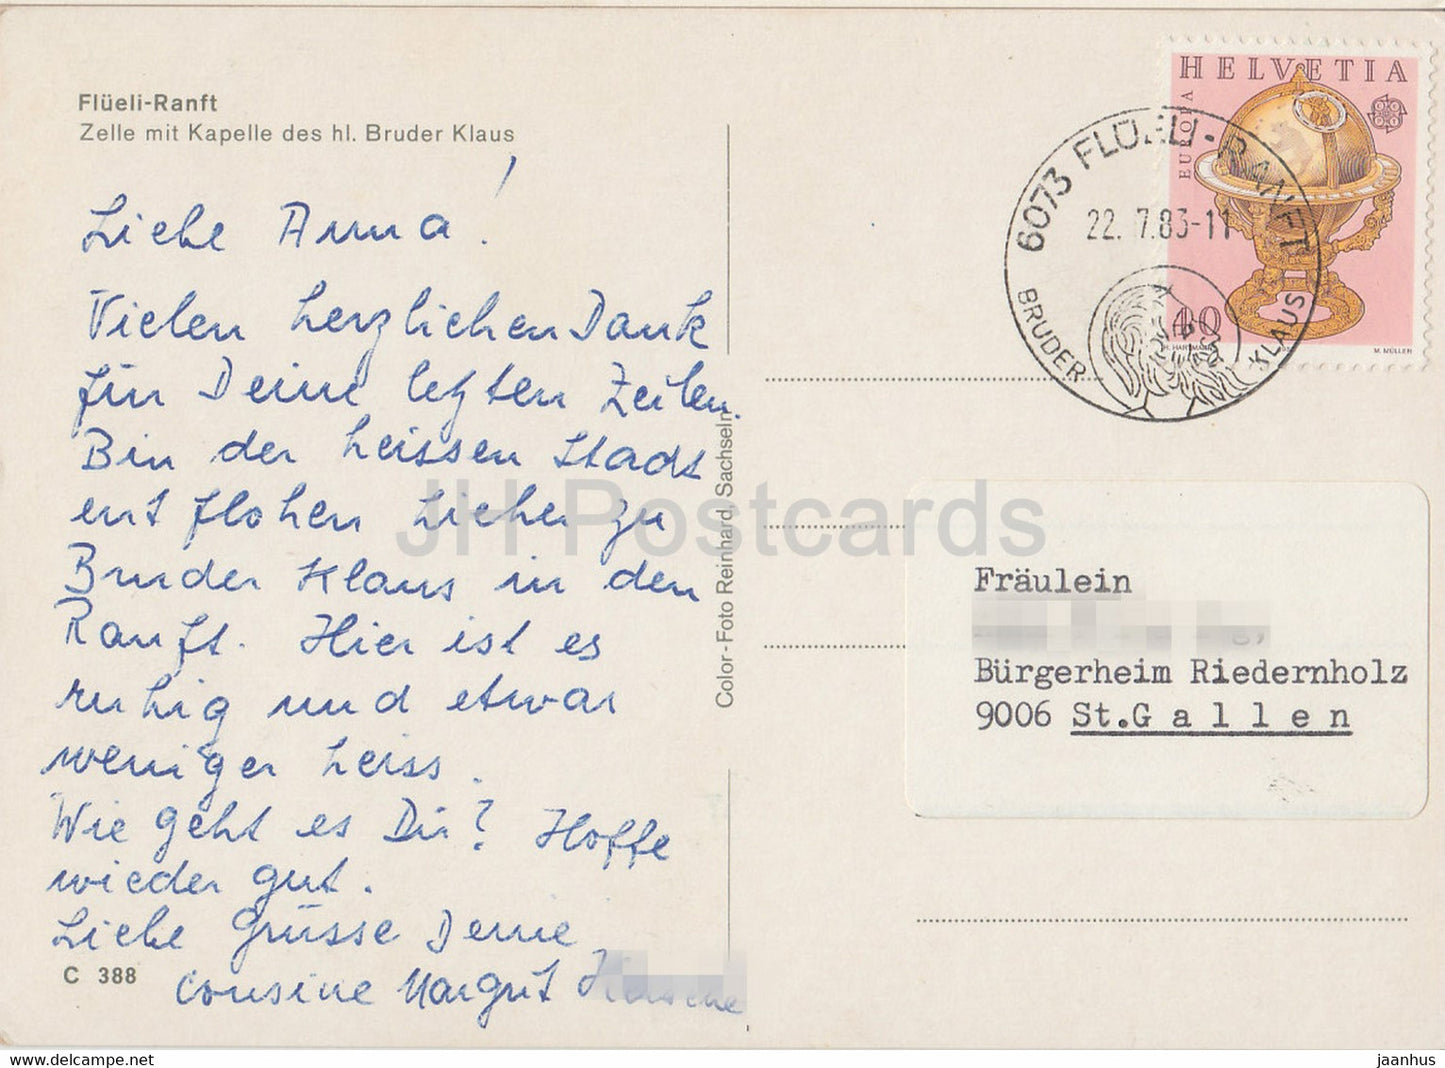 Flüeli-Ranft
Zelle mit Kapelle des hl. Bruder Klaus
Liebe Anna!
Vielen herzlichen Dank
für Deine letzten Zeilen.
Bin der heissen Stadt
entflohen hieher zu
Bruder Klaus in den
Ranft. Hier ist es
ruhig und etwas
weniger heiss.
Wie geht es Dir? Hoffe
wieder gut.
Liebe Grüsse Deine
Cousine Margrit
C 388
Color-Foto Reinhard, Sachseln
HELVETIA
EUROPA
40
H. HARTMANN
M. MÜLLER
6073 FLÜELI-RANFT
22. 7.83-11
BRUDER KLAUS
Fräulein
Bürgerheim Riedernholz
9006 St.Gallen
JH Postcards
jaanhus
www.delcampe.net